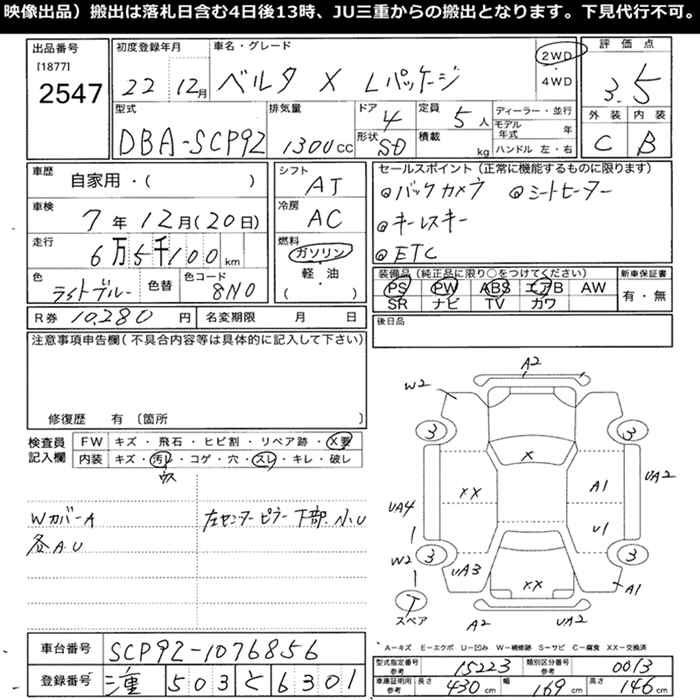 映像出品）搬出は落札日含む4日後13時、JU三重からの搬出となります。下見代行不可。
出品番号 [1877] 2547
初度登録年月 22年 12月
車名・グレード ベルタ X Lパッケージ
2WD・4WD
評価点 3.5
外装 C 内装 B
型式 DBA-SCP92
排気量 1300cc
ドア 4 形状 SD
定員 5人 積載 kg
ディーラー・並行
モデル年式 年
ハンドル 左・右
車歴 自家用・( )
車検 7年12月(20日)
走行 6万5千100km
色 ライトブルー 色替 色コード 8N0
シフト AT
冷房 AC
燃料 ガソリン・軽・油 ( )
セールスポイント(正常に機能するものに限ります)
◎バックカメラ ◎シートヒーター
◎キーレスキー
◎ETC
装備品(純正品に限り○をつけてください)
PS PW ABS エアB AW
SR ナビ TV カワ
新車保証書 有・無
R券 10,280円 名変期限 月 日
後日品
注意事項申告欄(不具合内容等は具体的に記入して下さい)
修復歴 有 〔箇所 〕
検査員記入欄
FW キズ・飛石・ヒビ割・リペア跡・X要
内装 キズ・汚レ・コゲ・穴・スレ・キレ・破レ
ウス
Wカバー A
各A.U
左センターピラー下部 小U
A2
W2
3
3
X
XX
A1
UA2
UA4
U1
W2
3
3
UA3
XX
A1
T
スペア
A2
UA2
A―キズ E―エクボ U―凹み W―補修跡 S―サビ C―腐食 XX―交換済
車台番号 SCP92-1076856
登録番号 三重 503 せ 6301
型式指定番号 参考 15223 類別区分番号 参考 0013
車庫証明用 参考 長さ 430cm 幅 169cm 高さ 146cm